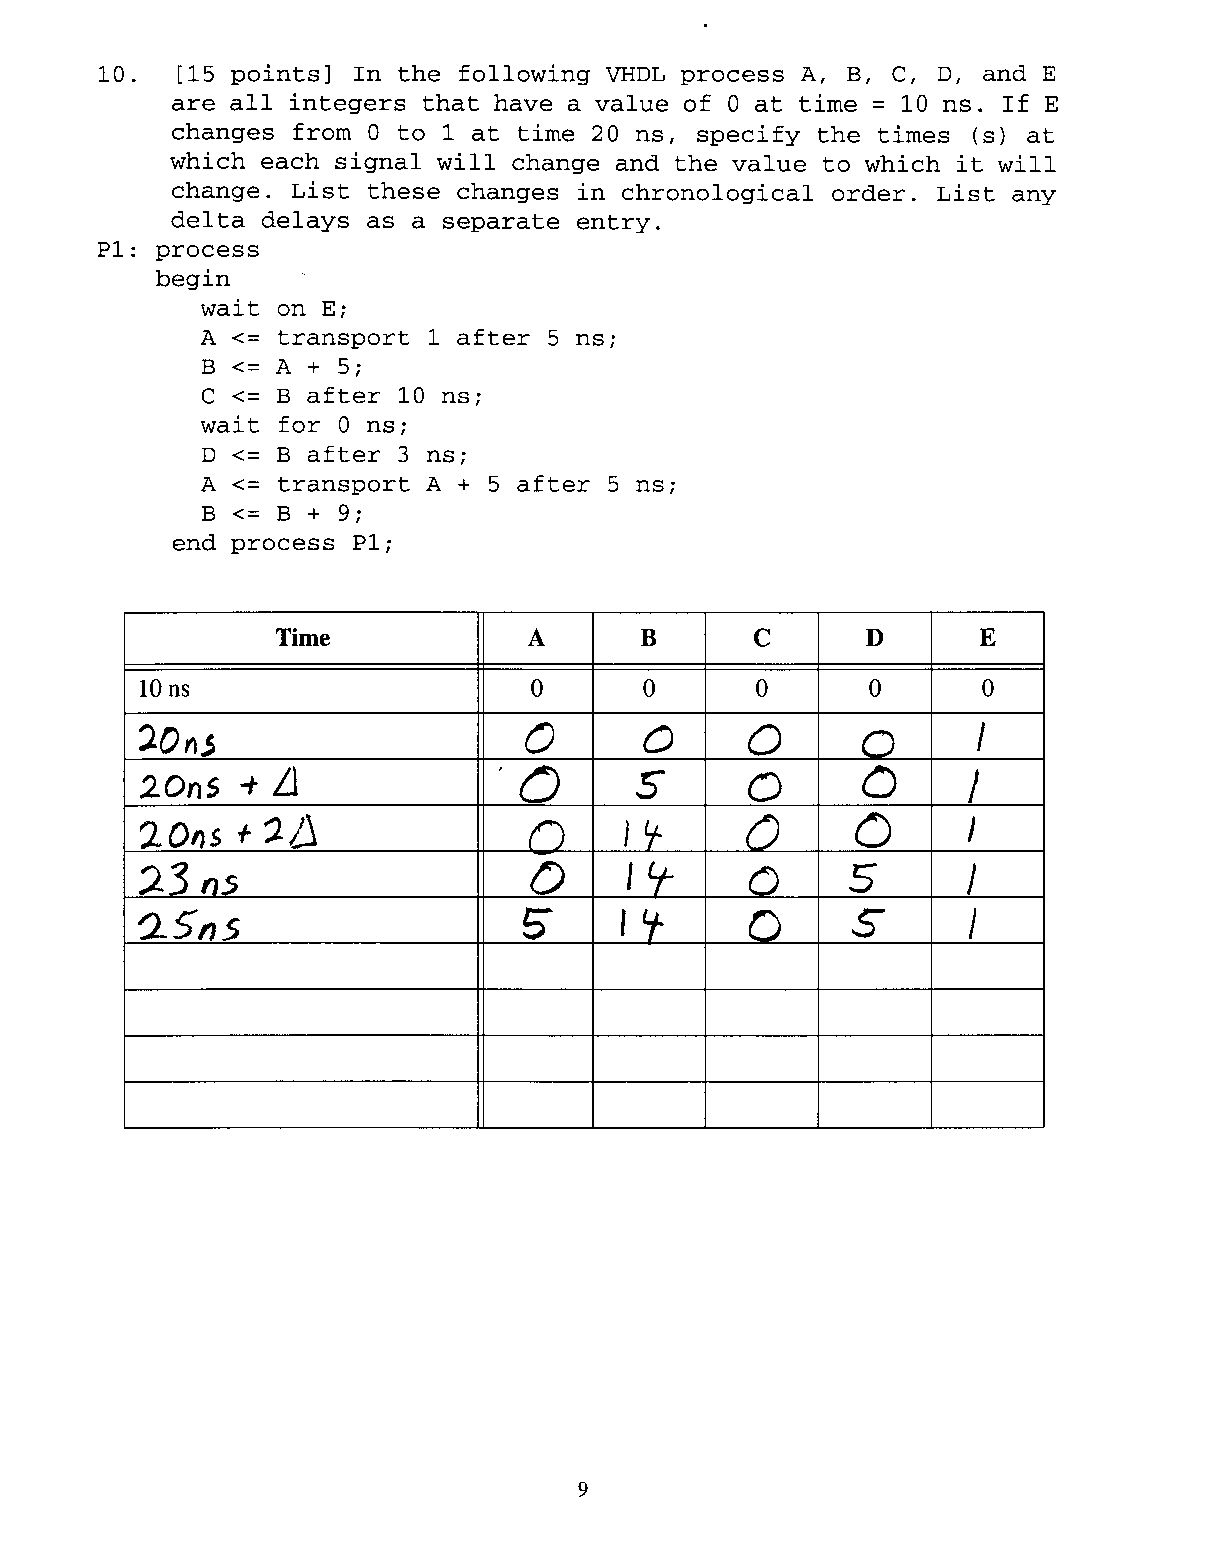 10. [15 points] In the following VHDL process A, B, C, D, and E
are all integers that have a value of 0 at time = 10 ns. If E
changes from 0 to 1 at time 20 ns, specify the times (s) at
which each signal will change and the value to which it will
change. List these changes in chronological order. List any
delta delays as a separate entry.
P1: process
begin
wait on E;
A <= transport 1 after 5 ns;
B <= A + 5;
C <= B after 10 ns;
wait for 0 ns;
D <= B after 3 ns;
A <= transport A + 5 after 5 ns;
B <= B + 9;
end process P1;
Time A B C D E
10 ns 0 0 0 0 0
20ns 0 0 0 0 1
20ns + Δ 0 5 0 0 1
20ns + 2Δ 0 14 0 0 1
23ns 0 14 0 5 1
25ns 5 14 0 5 1
9